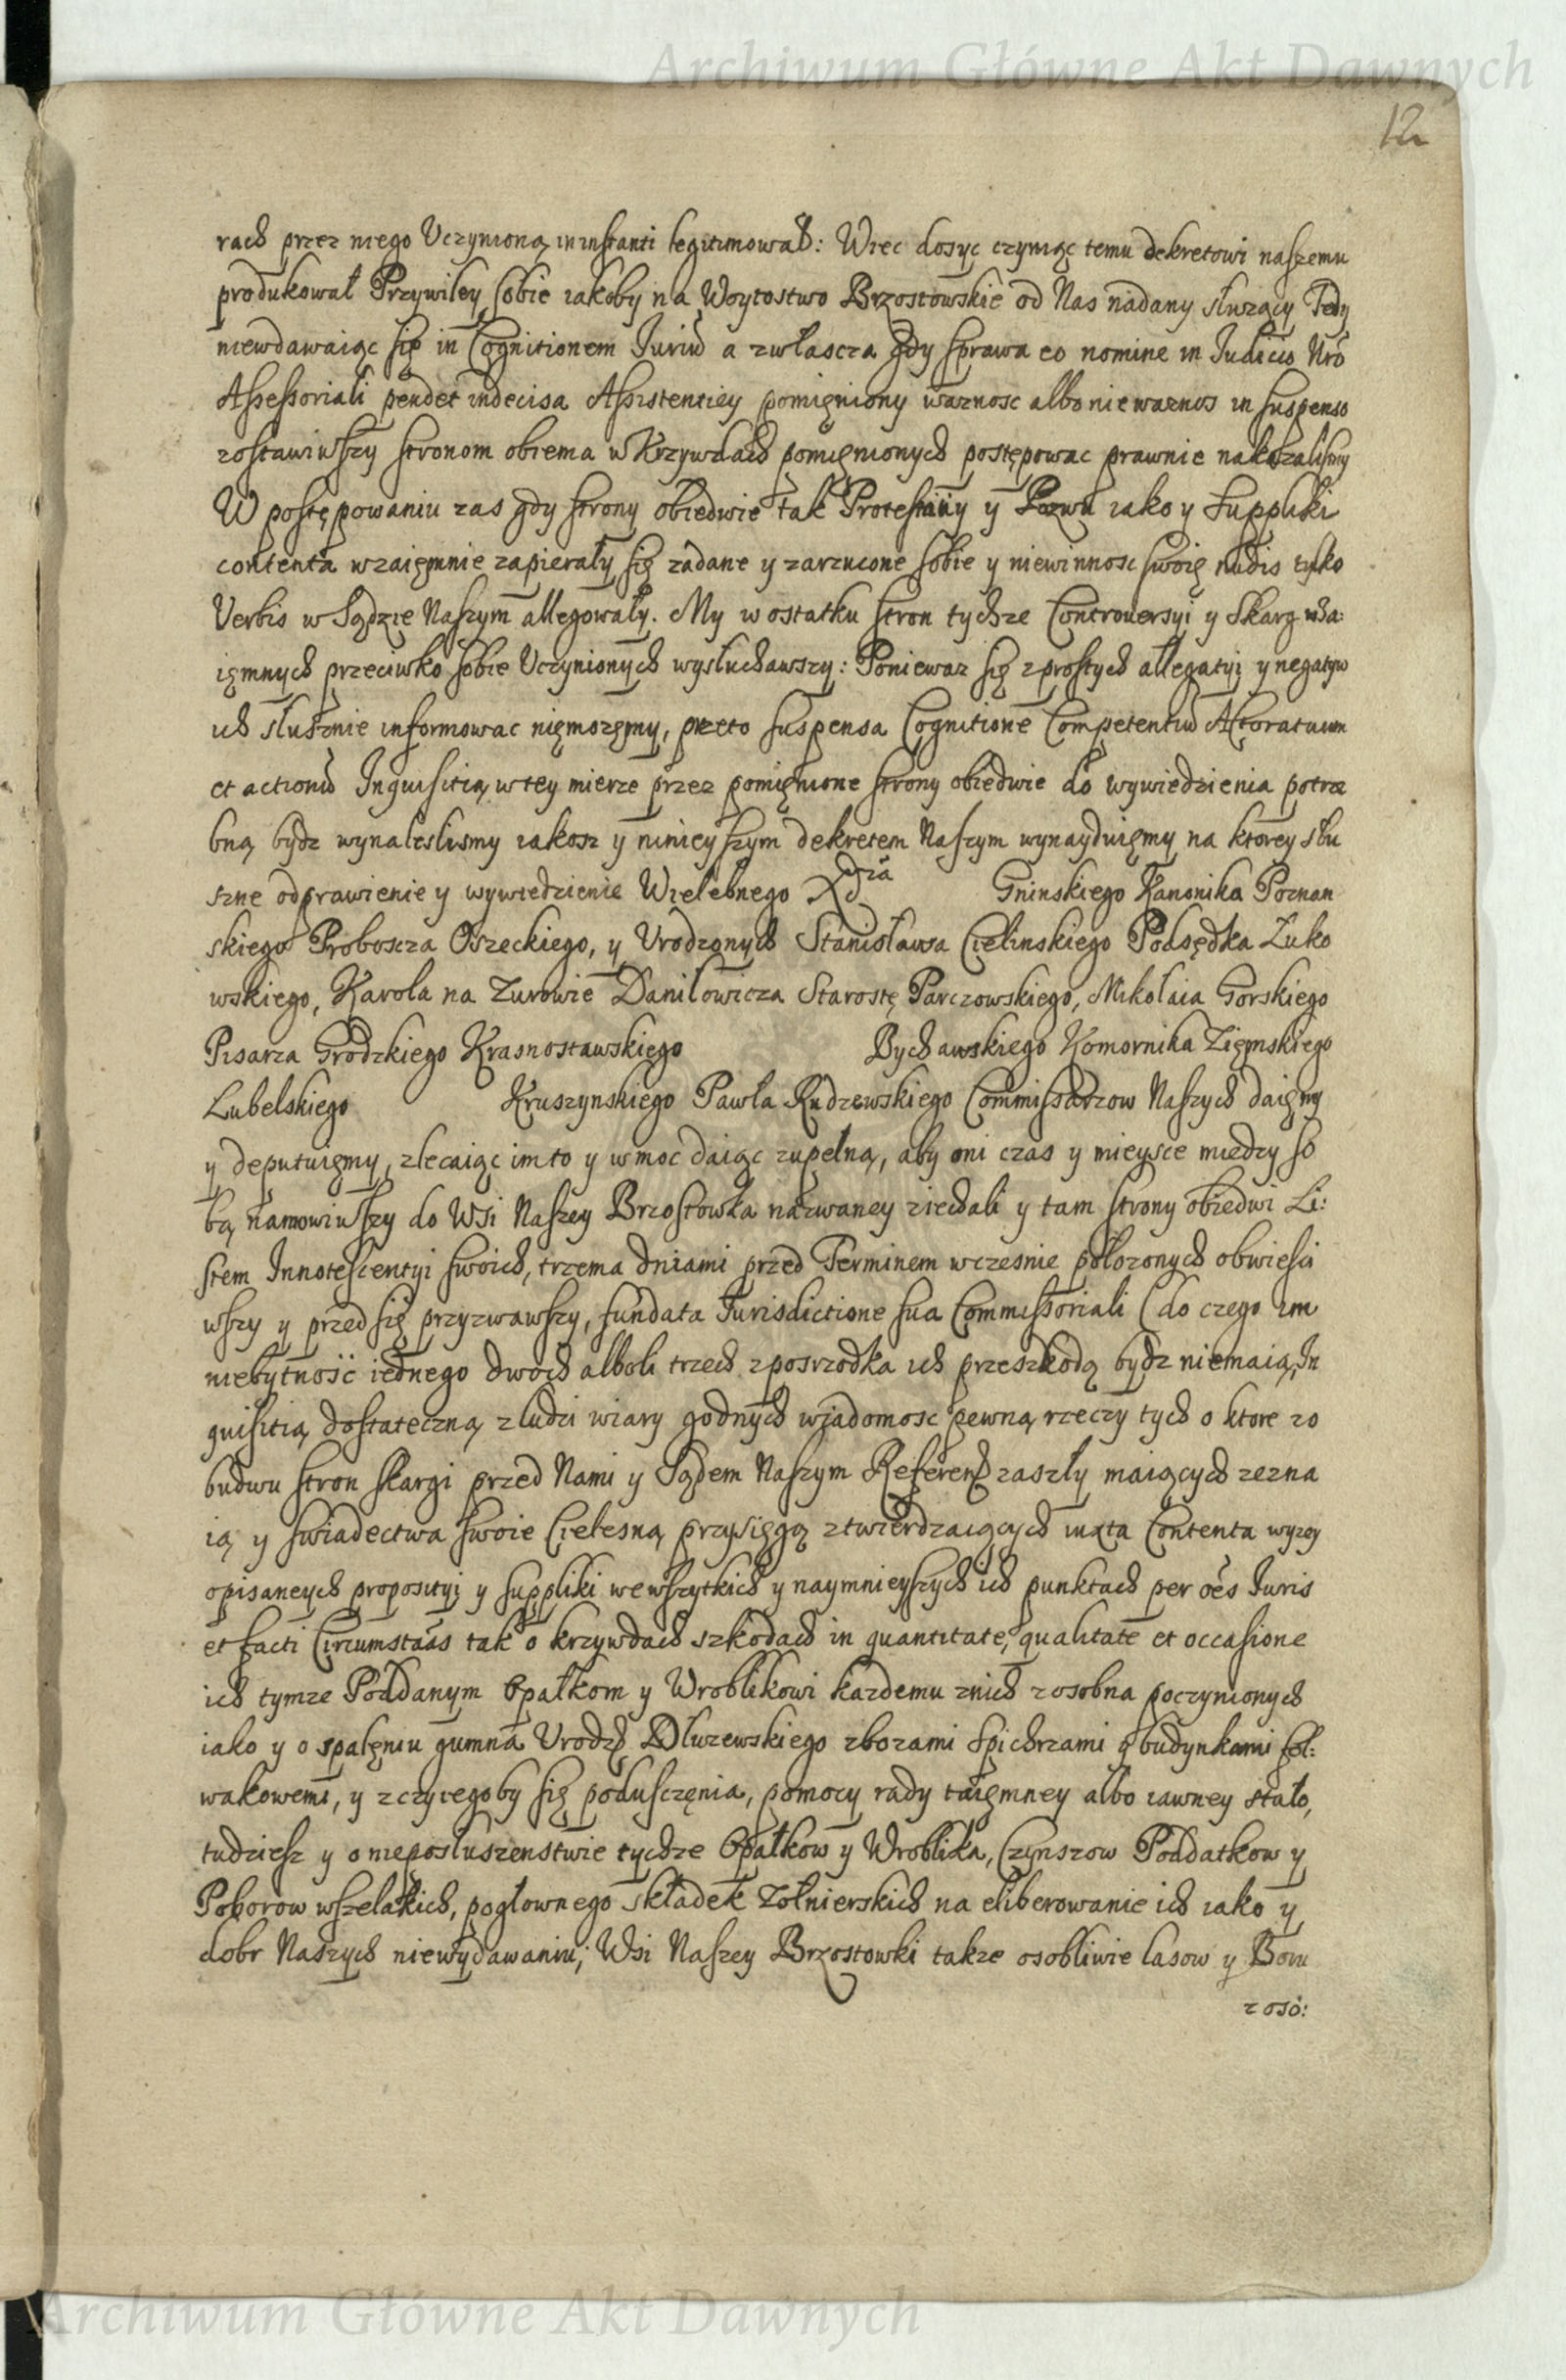 Archiwum Główne Akt Dawnych
12
rach przez niego Uczynioną in instanti legitimował: Wiec dosyc czyniąc temu dekretowi naszemu
produkował Przywiley sobie iakoby na Woytostwo Brzostowskie od Nas nadany słuzący Tedy
niewdawaiąc się in Cognitionem Iuriū a zwłascza gdy sprawa eo nomine in Iudicio Nrō
Assessoriali pendet indecisa Assistentiey pomięniony waznosc albo niewaznos in suspenso
zostawiwszy stronom obiema w Krzywdach pomięnionych postępowac prawnie nakazalismy
W postępowaniu zas gdy strony obiedwie tak Protestatiiy y Pozwu iako y Suppliki
contenta wzaięmnie zapierały się zadane y zarzucone sobie y niewinnosc swoię nudis tylko
Verbis w Sądzie Naszym allegowały. My w ostatku stron tychze Controversyi y Skarg wza:
ięmnych przeciwko sobie Uczynionych wysłuchawszy: Poniewaz się z prostych allegatyi y negatyw
ich słusznie informowac nięmozęmy, przeto suspensa Cognitione Competentiū Actoratuum
et actionū Inquisitią w tey mierze przez pomięnione strony obiedwie do wywiedzienia potrze
bną bydz wynaleslismy iakosz y ninieyszym dekretem Naszym wynayduięmy na ktorey słu
szne odprawienie y wywiedzienie Wielebnego Xdza Gninskiego Kanonika Poznan
skiego Proboscza Oszeckiego, y Urodzonych Stanisława Cielinskiego Podsędka Łuko
wskiego, Karola na Zurowie Daniłowicza Starostę Parczowskiego, Mikołaia Gorskiego
Pisarza Grodzkiego Krasnostawskiego Bychawskiego Komornika Zięmskiego
Lubelskiego Kruszynskiego Pawła Rudzewskiego Commissarzow Naszych daięmy
y deputuięmy, zlecaiąc im to y w moc daiąc zupełną, aby oni czas y mieysce miedzy so
bą namowiwszy do Wsi Naszey Brzostowka nazwaney ziechali y tam strony obiedwi Li:
stem Innotescentyi swoich, trzema dniami przed Terminem wczesnie połozonych obwiesci
wszy y przed się przyzwawszy, fundata Iurisdictione sua Commissoriali (do czego im
niebytność iednego dwoch alboli trzech z posrzodka ich przeszkodą bydz niemaią, In
quisitią dostateczną z ludzi wiary godnych wiadomosc pewną rzeczy tych o ktore z o
budwu stron skargi przed Nami y Sądem Naszym Referend zaszły maiących zezna
ią y swiadectwa swoie Cielesną przysięgą ztwierdzaiących iuxta Contenta wyzey
opisaneych propositÿi y suppliki we wszytkich y naymnieyszych ich punktach per oēs Iuris
et facti Circumstāas tak o krzywdach szkodach in quantitate, qualitate et occasione
ich tymze Poddanym Opałkom y Wroblikowi kazdemu znich z osobna poczynionych
iako y o spalęniu gumna Urodz Dłuzewskiego zbozami spichrzami y budynkami fol:
wakowemi, y z czyiegoby się poduscęnia, pomocy rady taięmney albo iawney stało,
tudziesz y o nieposłuszenstwie tychze Opałkow y Wroblika, Czynszow Poddatkow y
Poborow wszelakich, pogłownego składek Zołnierskich na eliberowanie ich iako y
dobr Naszych niewydawaniu; Wsi Naszey Brzostowki takze osobliwie lasow y Boru
z osó:
Archiwum Główne Akt Dawnych